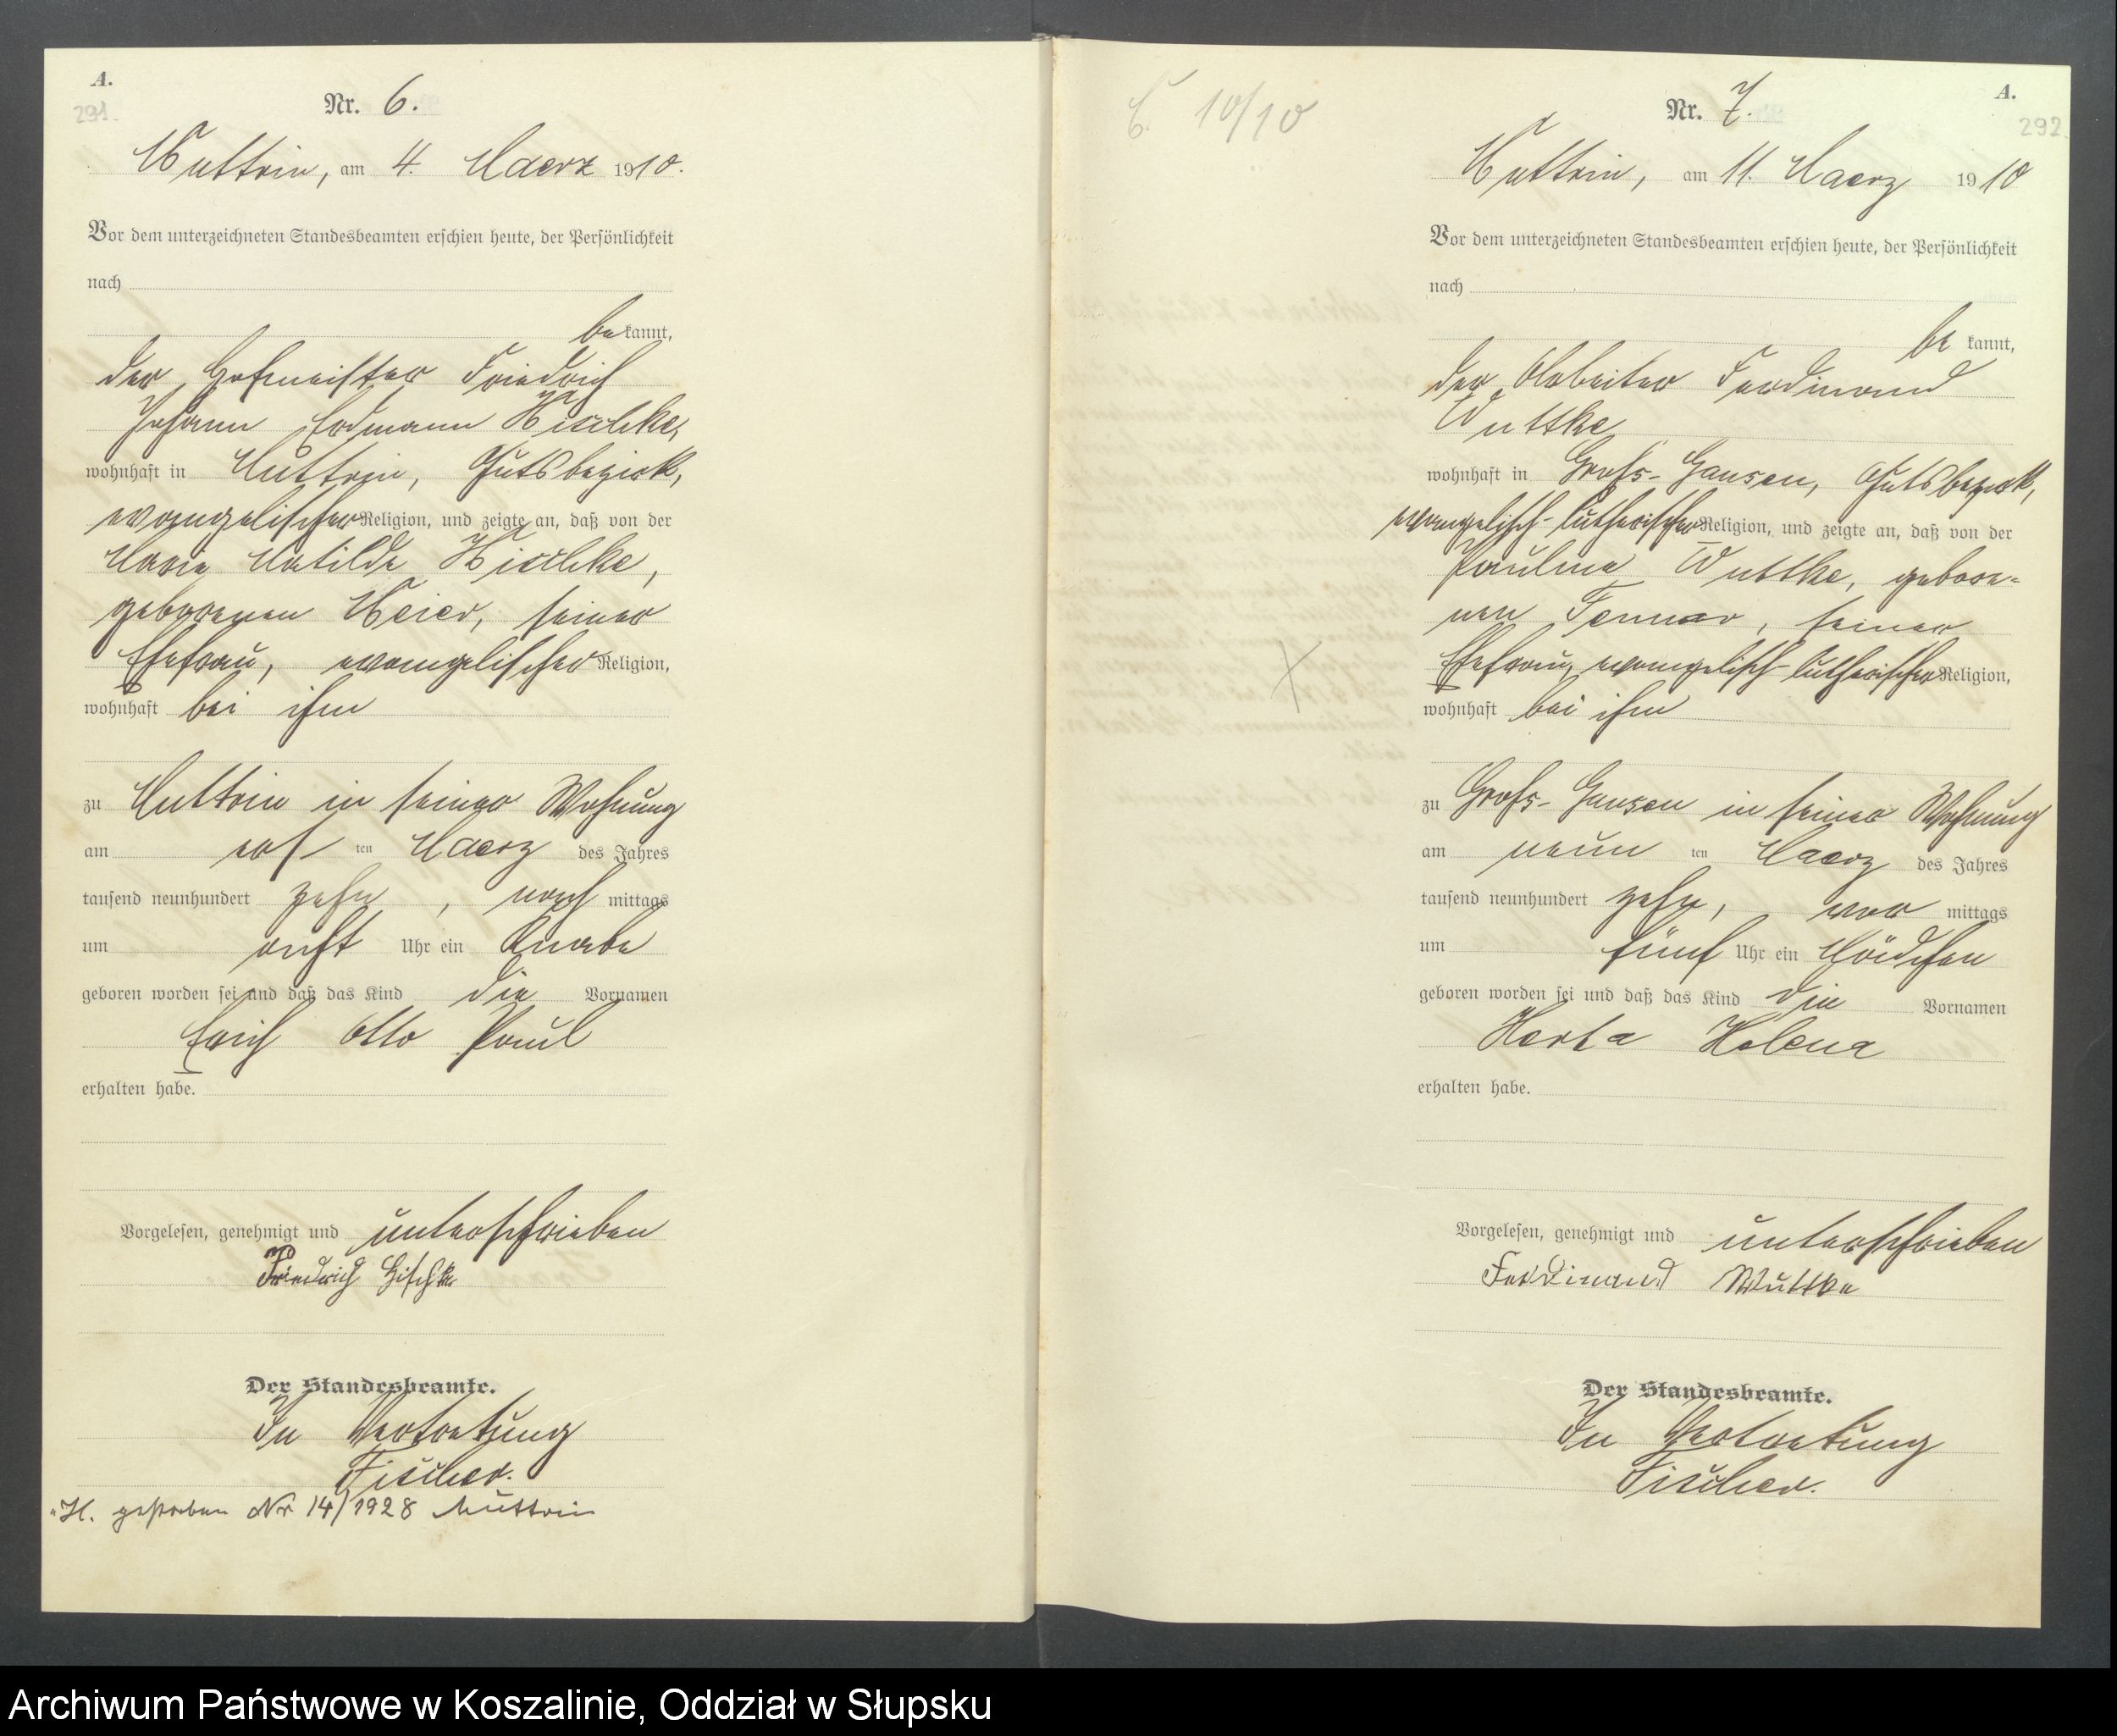 A.
291.
Nr. 6.
Muttrin, am 4. Maerz 1910.
Vor dem unterzeichneten Standesbeamten erschien heute, der Persönlichkeit
nach
bekannt,
der Hofmeister Friedrich
Johann Erdmann Hischke,
wohnhaft in Muttrin, Gutsbezirk,
evangelischer Religion, und zeigte an, daß von der
Marie Matilde Hischke,
geborenen Meier, seiner
Ehefrau, evangelischer Religion,
wohnhaft bei ihm
zu Muttrin in seiner Wohnung
am ersten Maerz des Jahres
tausend neunhundert zehn, nachmittags
um acht Uhr ein Knabe
geboren worden sei und daß das Kind die Vornamen
Erich Otto Paul
erhalten habe.
Vorgelesen, genehmigt und unterschrieben
Friedrich Hischke
Der Standesbeamte.
In Vertretung
Fischer.
H. gestorben Nr 14/1928 Muttrin
10/10
Nr. 7.
A.
292
Muttrin, am 11. Maerz 1910
Vor dem unterzeichneten Standesbeamten erschien heute, der Persönlichkeit
nach
bekannt,
der Arbeiter Ferdinand
Wuttke
wohnhaft in Groß-Gansen, Gutsbezirk,
evangelisch-lutherischer Religion, und zeigte an, daß von der
Pauline Wuttke, gebore-
nen Temmer, seiner
Ehefrau, evangelisch-lutherischer Religion,
wohnhaft bei ihm
zu Groß-Gansen in seiner Wohnung
am neunten Maerz des Jahres
tausend neunhundert zehn, vormittags
um fünf Uhr ein Mädchen
geboren worden sei und daß das Kind die Vornamen
Herta Helena
erhalten habe.
Vorgelesen, genehmigt und unterschrieben
Ferdinand Wuttke
Der Standesbeamte.
In Vertretung
Fischer.
Archiwum Państwowe w Koszalinie, Oddział w Słupsku